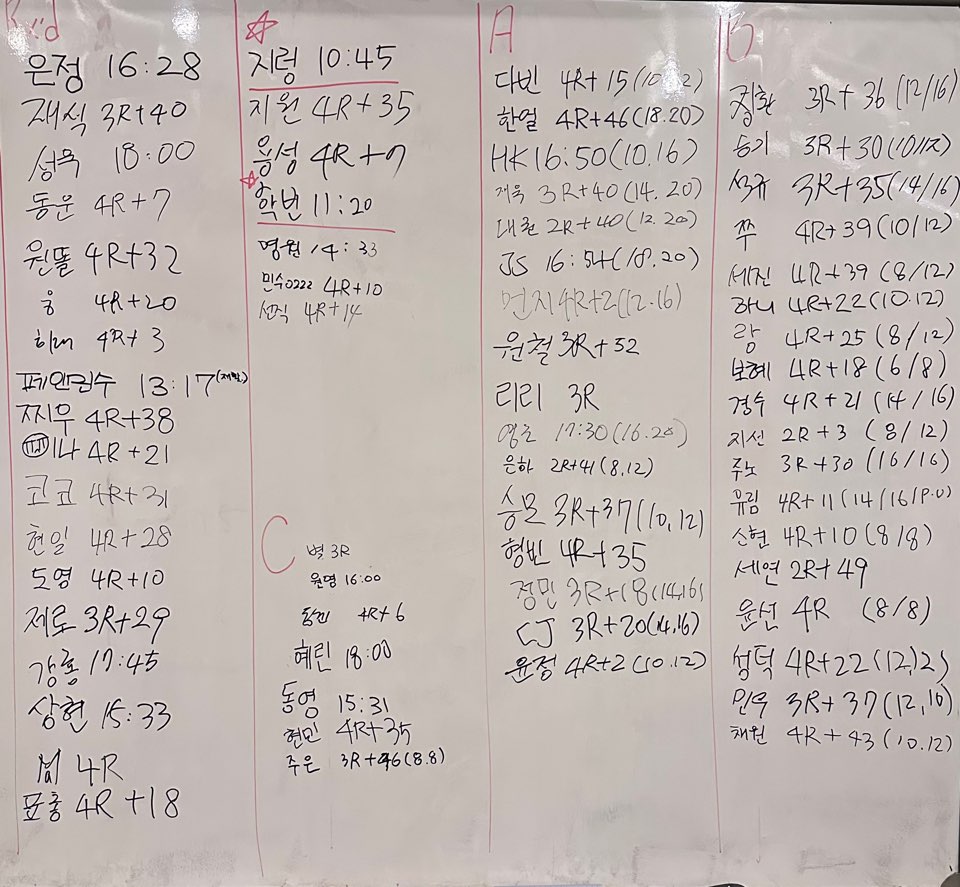 Rxd
은정 16:28
재식 3R+40
성욱 18:00
동운 4R+7
원똘 4R+32
웅 4R+20
히래 4R+3
페인림수 13:17
찌우 4R+38
미나 4R+21
코코 4R+31
현일 4R+28
도영 4R+10
제로 3R+29
강홍 17:45
상현 15:33
섭 4R
표총 4R+18
☆
지렁 10:45
지원 4R+35
용성 4R+7
☆
학번 11:20
명원 14:33
민수0222 4R+10
선직 4R+14
C
병 3R
원명 16:00
동진 4R+6
혜린 18:00
동영 15:31
현민 4R+35
주은 3R+46(8.8)
A
다빈 4R+15(10.12)
한얼 4R+46(18.20)
HK 16:50(10.16)
재욱 3R+40(14.20)
대권 2R+40(12.20)
JS 16:54(18.20)
먼지 4R+2(12.16)
윤철 3R+52
리리 3R
영호 17:30(16.20)
은하 2R+41(8.12)
승모 3R+37(10,12)
형빈 4R+35
정민 3R+18(14,16)
CJ 3R+20(14,16)
윤정 4R+2(10.12)
B
정환 3R+36(12/16)
등기 3R+30(10/12)
석규 3R+35(14/16)
쭈 4R+39(10/12)
세진 4R+39(8/12)
하니 4R+22(10.12)
랑 4R+25(8/12)
보혜 4R+18(6/8)
경수 4R+21(14/16)
지선 2R+3(8/12)
주노 3R+30(16/16)
유림 4R+11(14/16/P.U)
신현 4R+10(8/8)
세연 2R+49
윤선 4R (8/8)
성덕 4R+22(12,12)
민우 3R+37(12,16)
채원 4R+43(10.12)